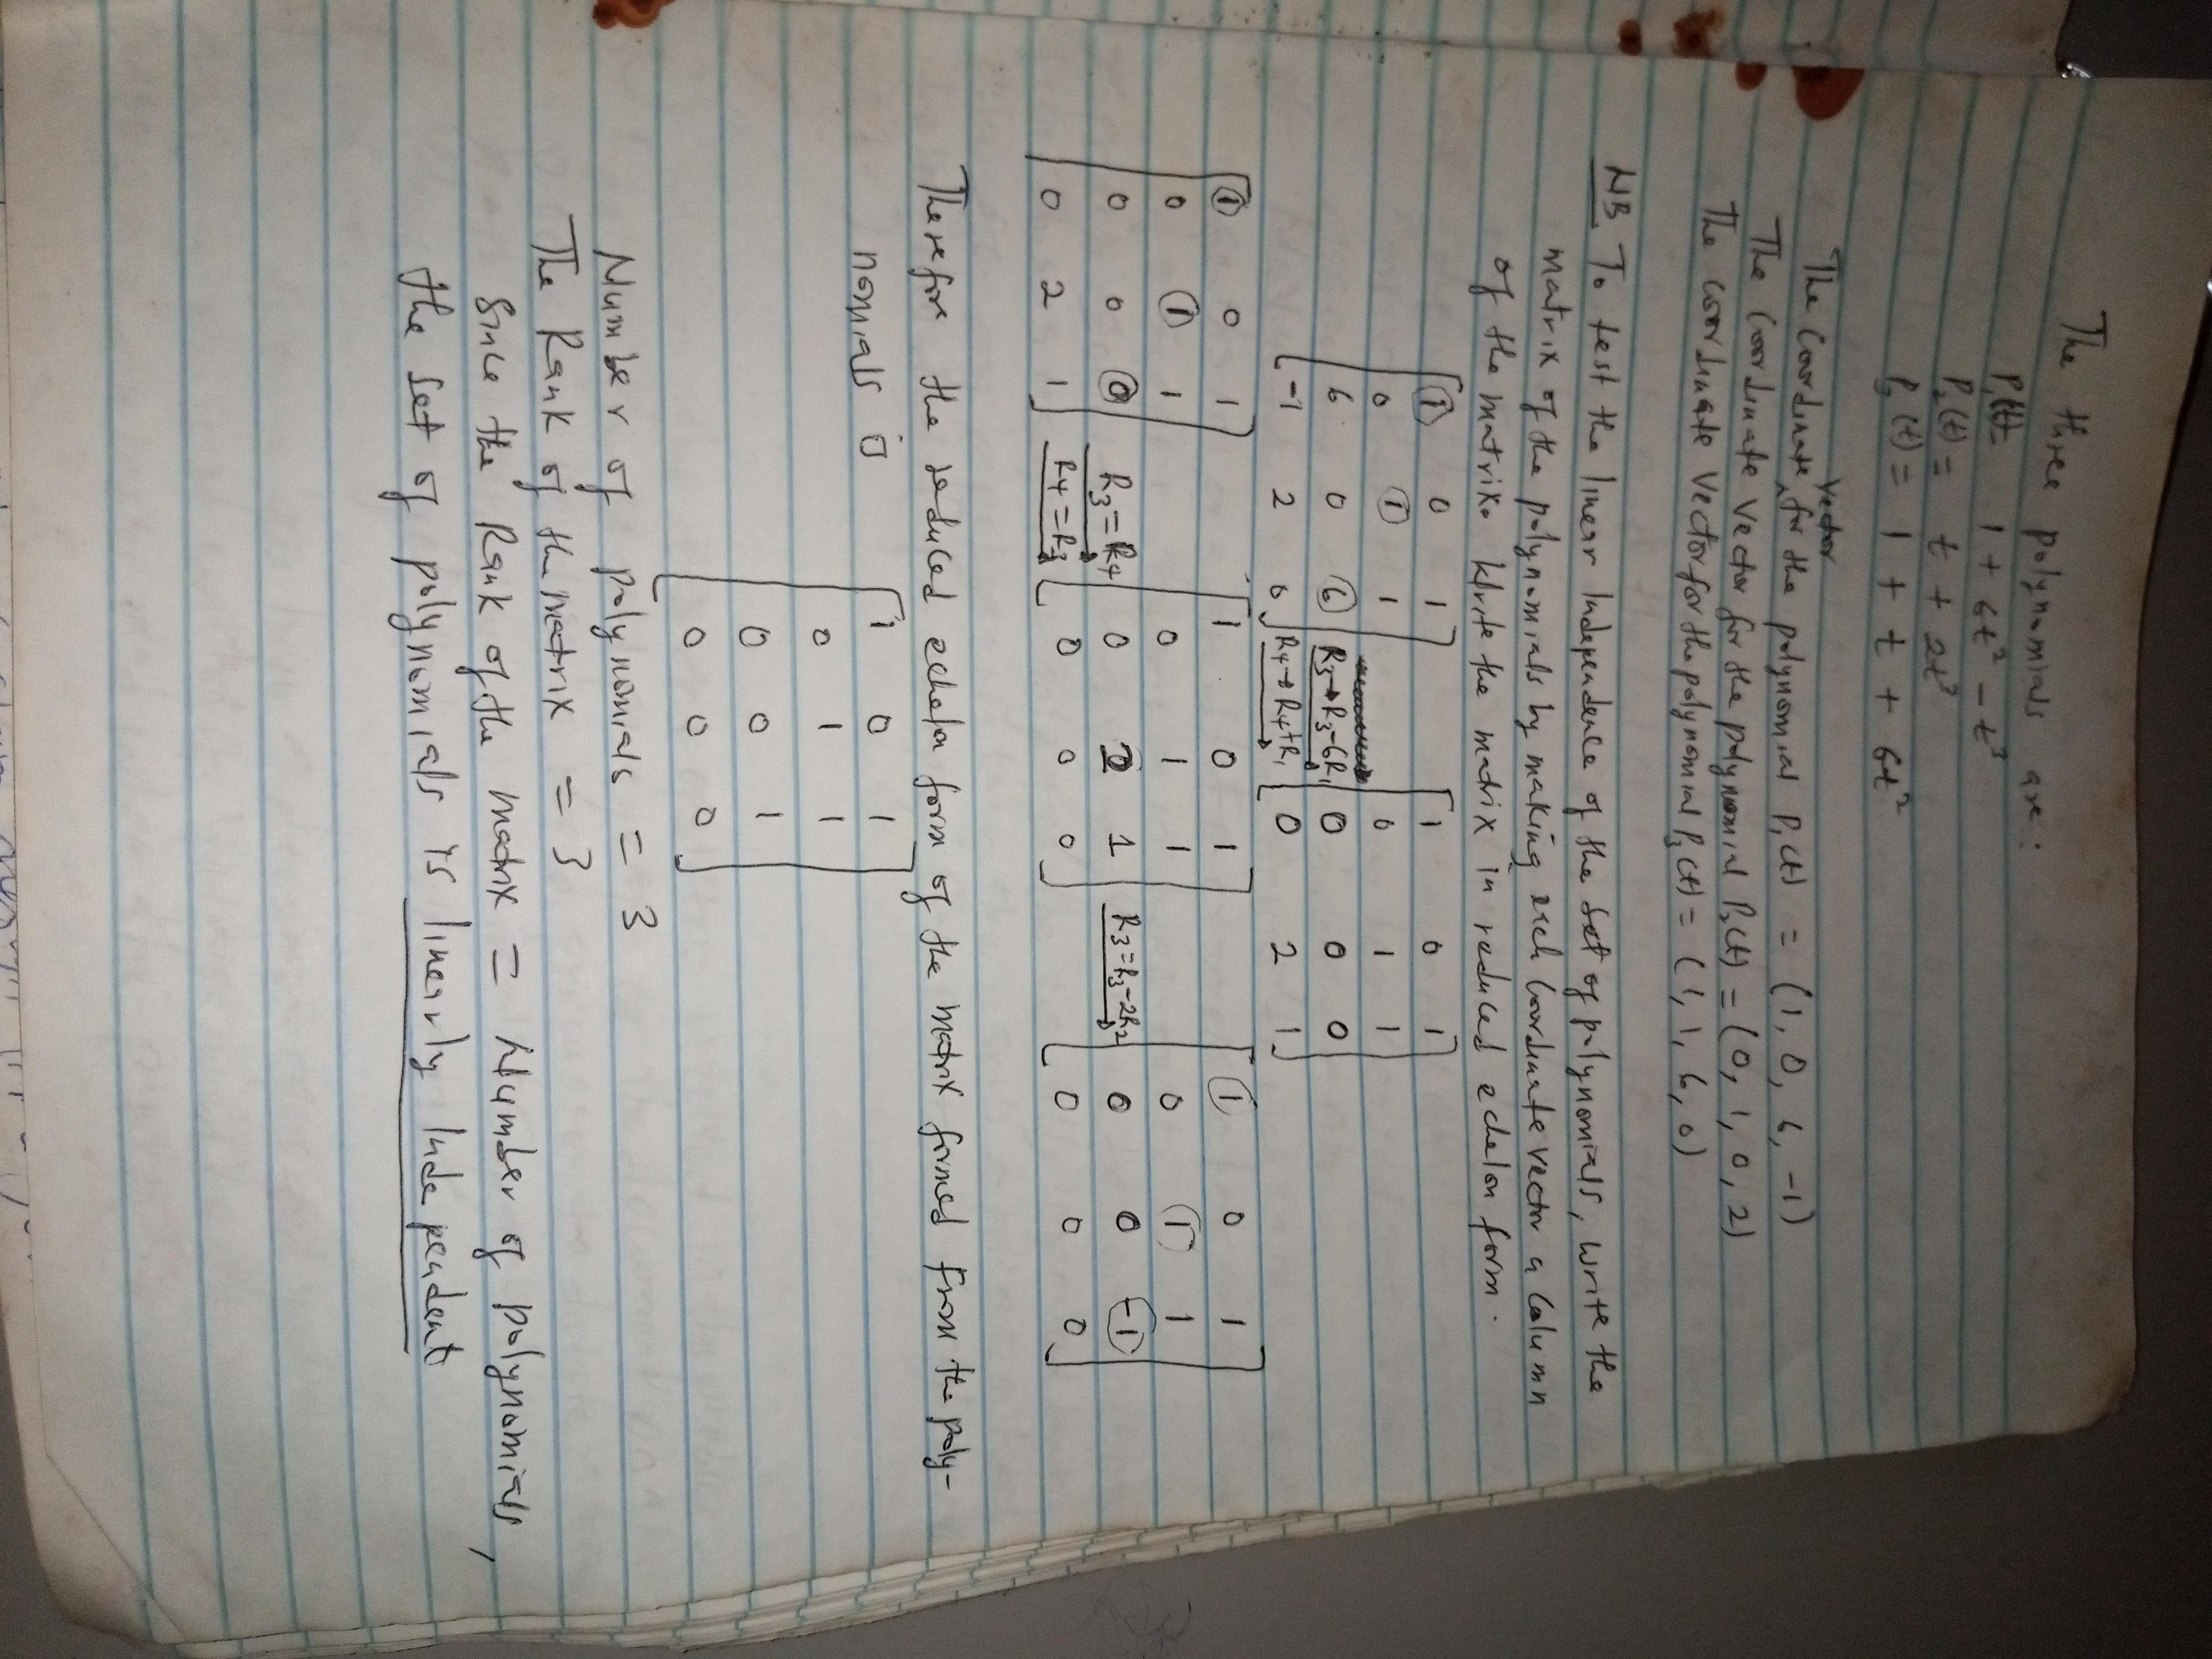 The three polynomials are:
P₁(t) = 1 + 6t² - t³
P₂(t) = t + 2t³
P₃(t) = 1 + t + 6t²
The Coordinate Vector for the polynomial P₁(t) = (1, 0, 6, -1)
The Coordinate Vector for the polynomial P₂(t) = (0, 1, 0, 2)
The Coordinate Vector for the polynomial P₃(t) = (1, 1, 6, 0)
NB. To test the linear independence of the set of polynomials, write the
matrix of the polynomials by making each Coordinate vector a Column
of the matrix. Write the matrix in reduced echelon form.
1 0 1 1 0 1
0 1 1 0 1 1
6 0 6 R3→R3-6R1 0 0 0
-1 2 0 R4→R4+R1 0 2 1
1 0 1 1 0 1 1 0 1
0 1 1 0 1 1 0 1 1
0 0 0 R3=R4 0 2 1 R3=R3-2R2 0 0 -1
0 2 1 R4=R3 0 0 0 0 0 0
Therefore the reduced echelon form of the matrix formed from the poly-
nomials is
1 0 1
0 1 1
0 0 1
0 0 0
Number of polynomials = 3
The Rank of the matrix = 3
Since the Rank of the matrix = Number of polynomials,
the set of polynomials is linearly independent